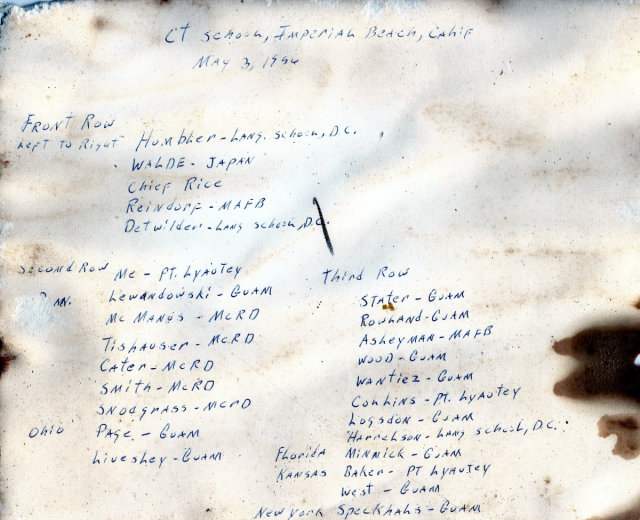 CT School, Imperial Beach, Calif
May 3, 1956
Front Row
Left to Right Hombher - Lang. School, D.C.
Walde - Japan
Chief Rice
Reindorf - MAFB
Detwilder - Lang School, D.C.
Second Row Me - Pt. Lyautey
Lewandowski - Guam
Mc Manos - McRD
Tishauser - McRD
Cater - McRD
Smith - McRD
Snodgrass - McRD
Ohio Page - Guam
Liveshey - Guam
Third Row
Stater - Guam
Rowland - Guam
Asheyman - MAFB
Wood - Guam
Wantiez - Guam
Collins - Pt. Lyautey
Logsdon - Guam
Harrelson - Lang School, D.C.
Florida Minnick - Guam
Kansas Baker - Pt Lyautey
West - Guam
New York Speckhals - Guam